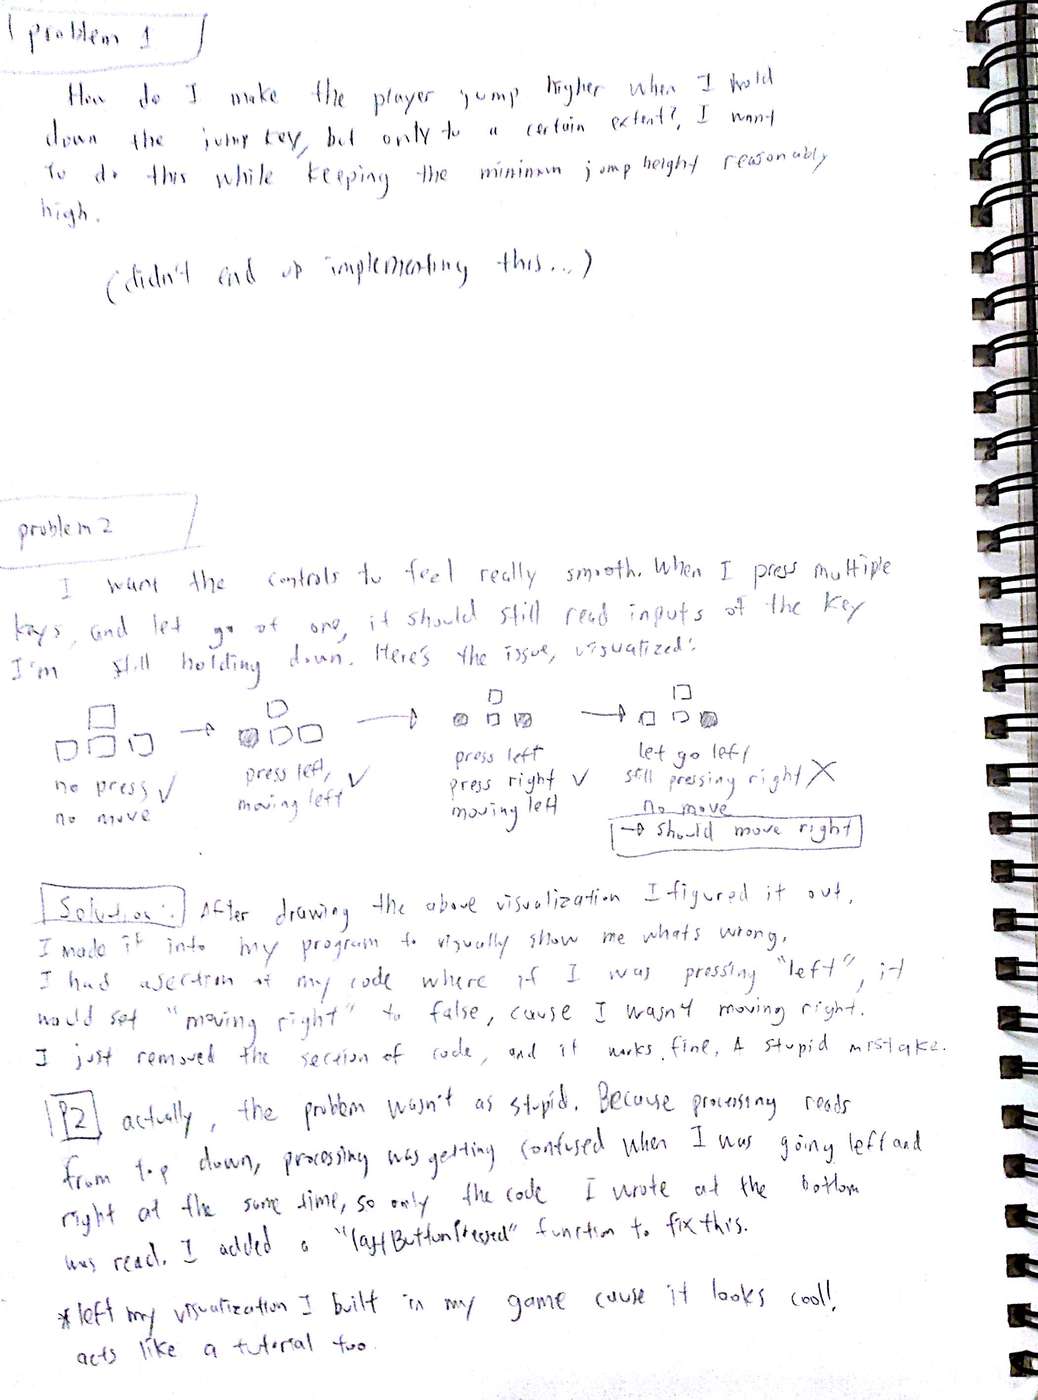 problem 1
How do I make the player jump higher when I hold
down the jump key, but only to a certain extent?, I want
to do this while keeping the minimum jump height reasonably
high.
(didn't end up implementing this...)
problem 2
I want the controls to feel really smooth. When I press multiple
keys, and let go of one, it should still read inputs of the key
I'm still holding down. Here's the issue, visualized:
no press ✓
no move
press left, ✓
moving left
press left
press right ✓
moving left
let go left
still pressing right X
no move
→ should move right
Solution: After drawing the above visualization I figured it out,
I made it into my program to visually show me whats wrong,
I had a section of my code where if I was pressing "left", it
would set "moving right" to false, cause I wasn't moving right.
I just removed the section of code, and it works fine, A stupid mistake.
P2 actually, the problem wasn't as stupid. Because processing reads
from top down, processing was getting confused when I was going left and
right at the same time, so only the code I wrote at the bottom
was read. I added a "lastButtonPressed" function to fix this.
*left my visualization I built in my game cause it looks cool!,
acts like a tutorial too.